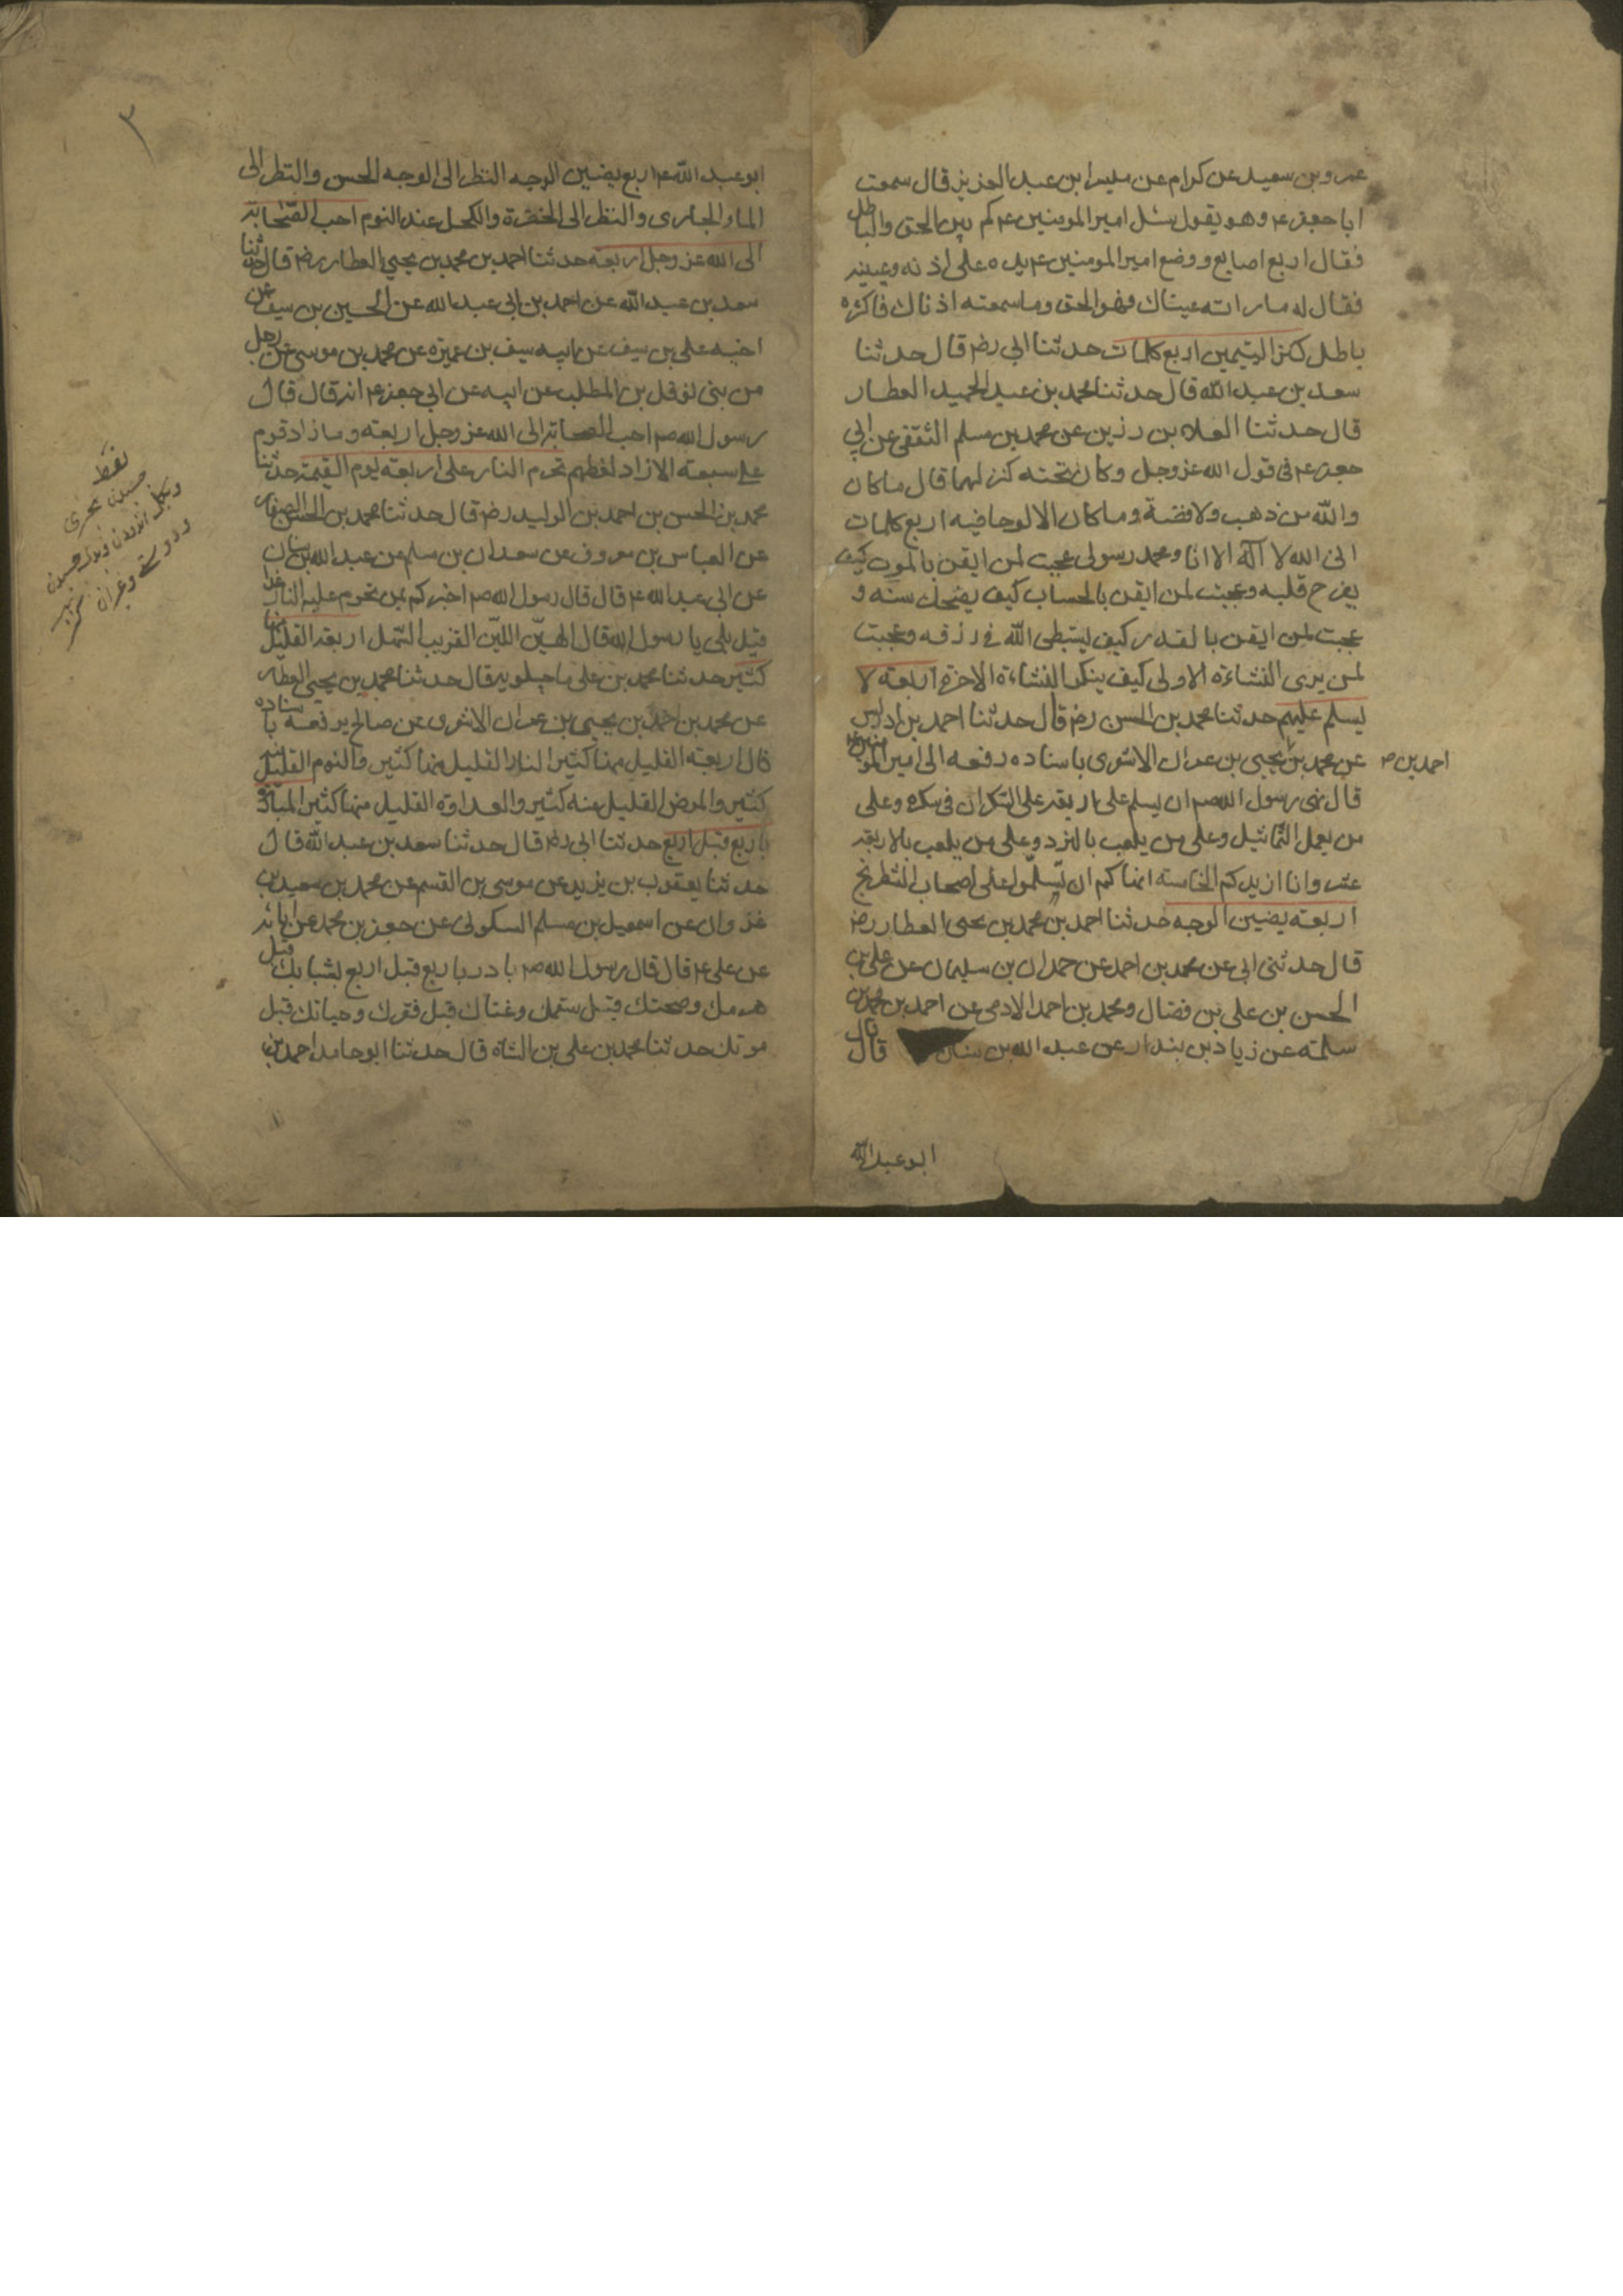 عمرو بن سعيد عن كرام عن ميسر ابن عبد العزيز قال سمعت
ابا جعفر ع وهو يقول سئل امير المومنين ع كم بين الحق والباطل
فقال اربع اصابع ووضع امير المومنين ع يده على اذنه وعينيه
فقال له ما راته عيناك فهو الحق وما سمعته اذناك فاكثره
باطل كنز اليتيمين اربع كلمات حدثنا ابي رضه قال حدثنا
سعد بن عبد الله قال حدثنا محمد بن عبد الحميد العطار
قال حدثنا العلاء بن رزين عن محمد بن مسلم الثقفى عن ابي
جعفر ع فى قول الله عز وجل وكان تحته كنز لهما قال ما كان
والله من ذهب ولا فضة وما كان الا لوحا فيه اربع كلمات
انى الله لا اله الا انا ومحمد رسولى عجبت لمن ايقن بالموت كيف
يفرح قلبه وعجبت لمن ايقن بالحساب كيف يضحك سنه و
عجبت لمن ايقن بالقدر كيف يستبطى الله فى رزقه وعجبت
لمن يرى النشاءة الاولى كيف ينكر النشاءة الاخرة اربعة لا
يسلم عليهم حدثنا محمد بن الحسن رضه قال حدثنا احمد بن ادريس
عن محمد بن يحيى بن عمران الاشعرى باسناده رفعه الى امير المومنين ع
احمد بن ص
قال نهى رسول الله ص ان يسلم على اربعة على السكران فى سكره وعلى
من يعمل التماثيل وعلى من يلعب بالنرد وعلى من يلعب بالاربعة
عشر وانا ازيدكم الخامسة انهاكم ان تسلموا على اصحاب الشطرنج
اربعة يضيين الوجه حدثنا احمد بن محمد بن يحيى العطار رضه
قال حدثنى ابى عن محمد بن احمد عن حمدان بن سليمان عن على بن
الحسن بن على بن فضال ومحمد بن احمد الادمى عن احمد بن محمد بن
سلمة عن زياد بن بندار عن عبد الله بن سنان قال قال
ابو عبد الله
٣
ابو عبد الله ع اربع يضيين الوجه النظر الى الوجه الحسن والنظر الى
الماء الجارى والنظر الى الخضرة والكحل عند النوم احب الصحابة
الى الله عز وجل اربعة حدثنا احمد بن محمد بن يحيى العطار رضه قال حدثنا
سعد بن عبد الله عن احمد بن ابى عبد الله عن الحسين بن سيف عن
اخيه على بن سيف عن ابيه سيف بن عميرة عن محمد بن موسى عن رجل
من بنى نوفل بن المطلب عن ابيه عن ابى جعفر ع انه قال قال
رسول الله ص احب الصحابة الى الله عز وجل اربعة وما زاد قوم
على سبعة الا زاد لغطهم تحرم النار على اربعة يوم القيمة حدثنا
محمد بن الحسن بن احمد بن الوليد رضه قال حدثنا محمد بن الحسن الصفار
عن العباس بن معروف عن سعدان بن مسلم عن عبد الله بن سنان
عن ابى عبد الله ع قال قال رسول الله ص اخبركم بمن تحرم عليه النار غدا
قيل بلى يا رسول الله قال الهين اللين القريب السهل اربعة القليل منها
كثير حدثنا محمد بن على ماجيلويه قال حدثنا محمد بن يحيى العطار
عن محمد بن احمد بن يحيى بن عمران الاشعرى عن صالح يرفعه باسناده
قال اربعة القليل منها كثير النار القليل منها كثير والنوم القليل منه
كثير والمرض القليل منه كثير والعداوة القليل منها كثير المبادرة
باربع قبل اربع حدثنا ابى رضه قال حدثنا سعد بن عبد الله قال
حدثنا يعقوب بن يزيد عن موسى بن القسم عن محمد بن سعيد بن
غزوان عن اسمعيل بن مسلم السكونى عن جعفر بن محمد عن ابائه
عن على ع قال قال رسول الله ص بادر باربع قبل اربع بشبابك قبل
هرمك وصحتك قبل سقمك وغناك قبل فقرك وحياتك قبل
موتك حدثنا محمد بن على بن الشاه قال حدثنا ابو حامد احمد بن